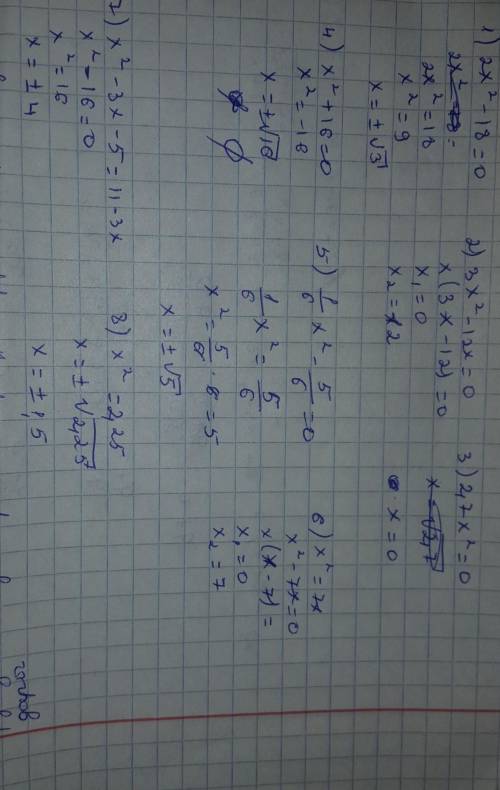 1) 2x² - 18 = 0
2x² = 18
x² = 9
x = ± √3
2) 3x² - 12x = 0
x (3x - 12) = 0
x₁ = 0
x₂ = 12
3) 2,7x² = 0
x = 0
4) x² + 16 = 0
x² = -16
x = ± √16
∅
5) 1/6 x² - 5/6 = 0
1/6 x² = 5/6
x² = 5/6 · 6 = 5
x = ± √5
6) x² = 7x
x² - 7x = 0
x (x - 7) =
x₁ = 0
x₂ = 7
7) x² - 3x - 5 = 11 - 3x
x² - 16 = 0
x² = 16
x = ± 4
8) x² = 2,25
x = ± √2,25
x = ± 1,5